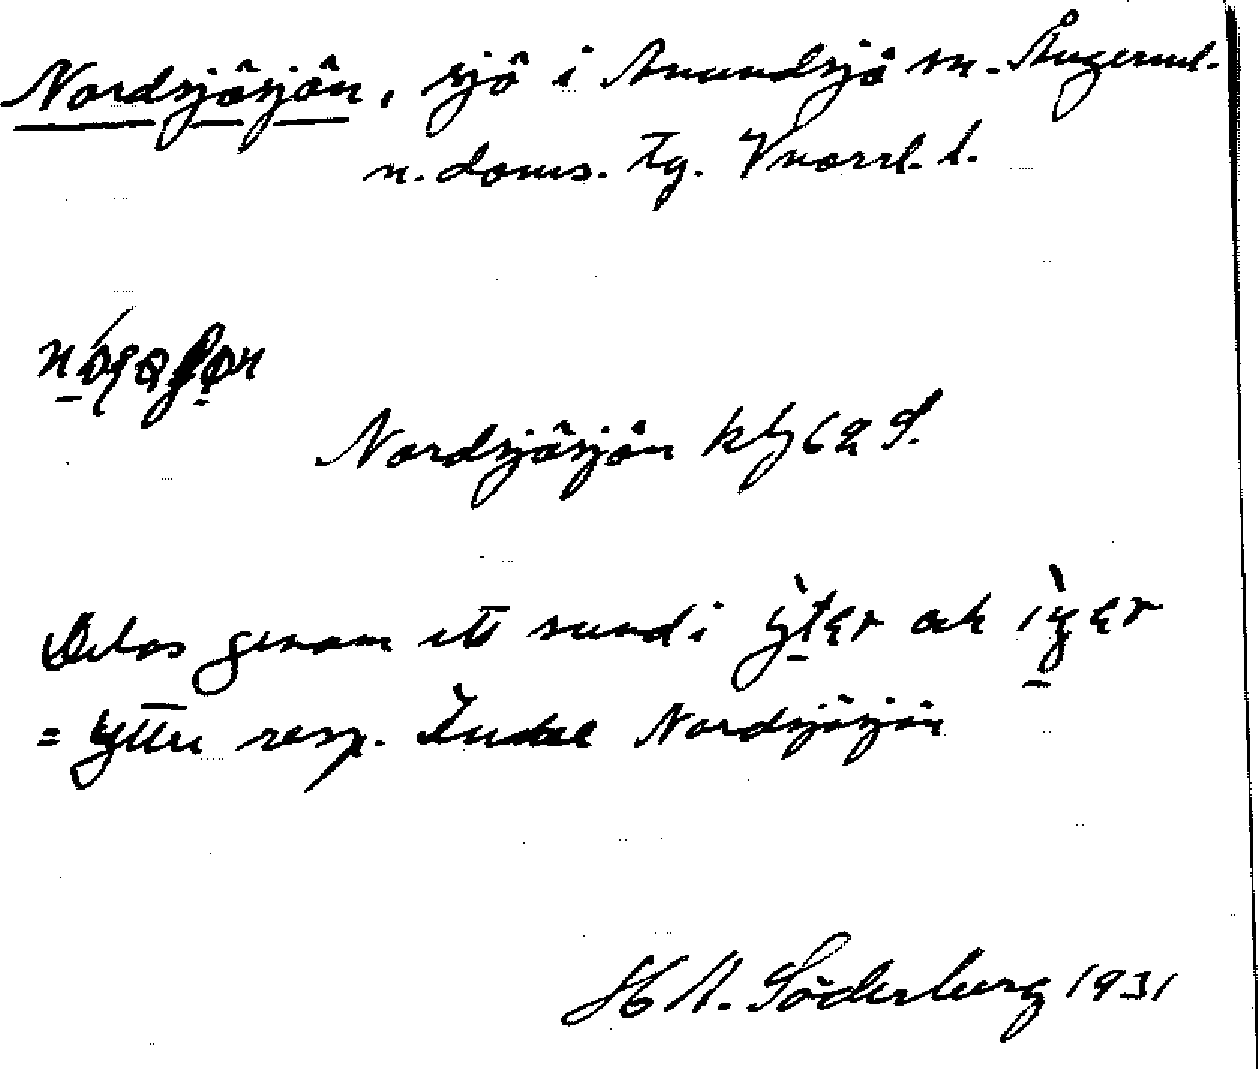 Nordsjösjön, sjö i Anundsjö sn. Ångerml.
n. doms. tg. Vnorrl. l.
Nordsjösjön kbl 62 S.
Delas genom ett sund i och
= Yttre resp. Indre Nordsjösjön
H A. Söderberg 1931